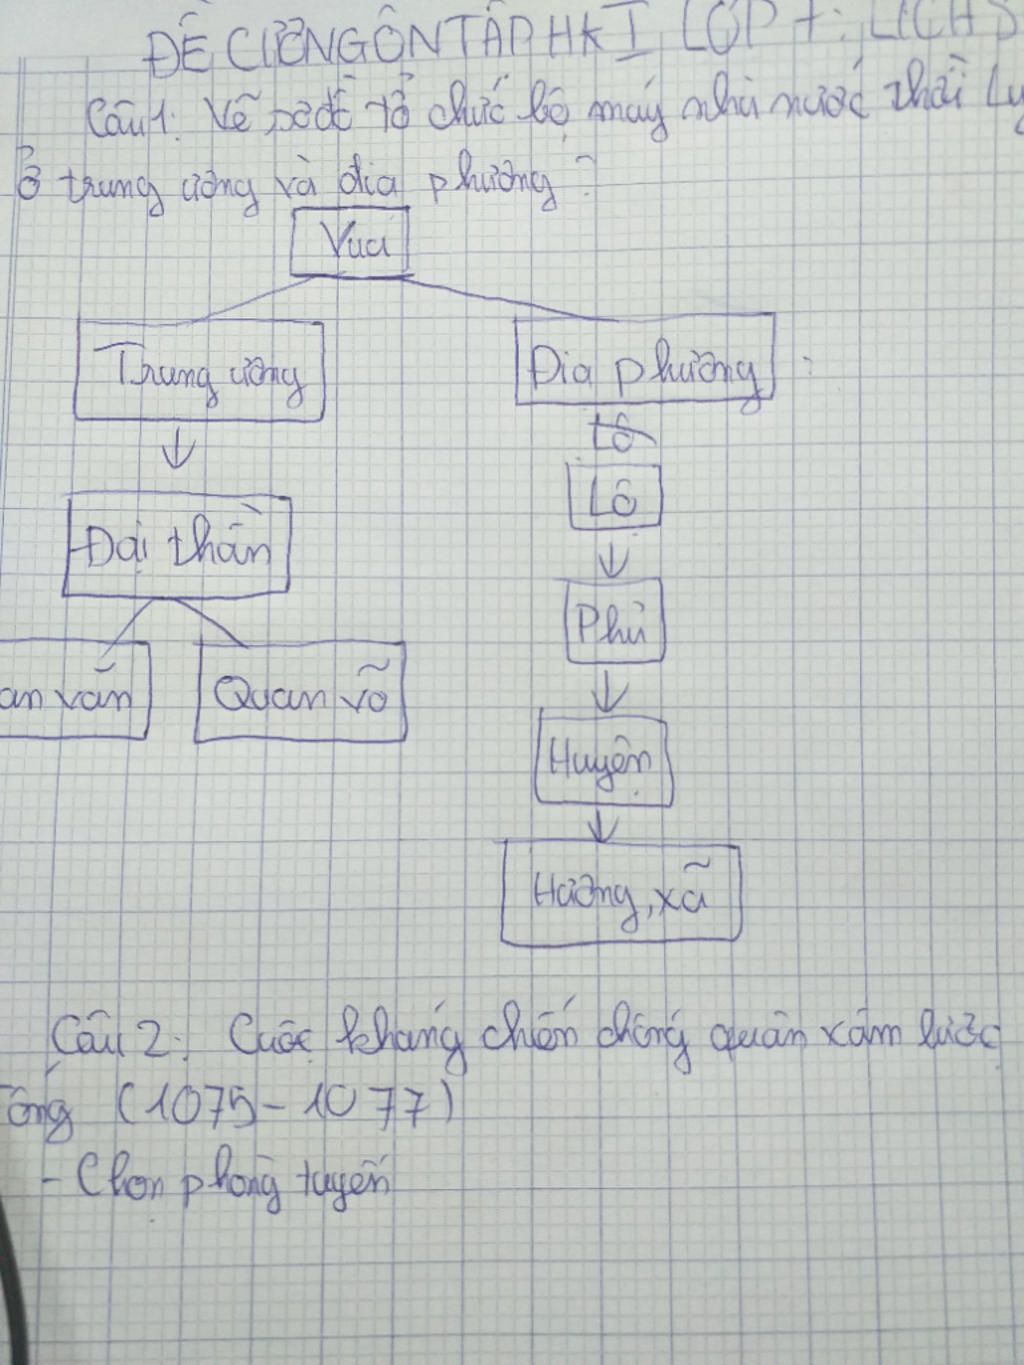 ĐỀ CƯƠNG ÔN TẬP HKI LỚP 7: LỊCH S
Câu 1: Vẽ sơ đồ tổ chức bộ máy nhà nước thời Lý
ở trung ương và địa phương?
Vua
Trung ương
Địa phương:
Lộ
Đại thần
Lộ
Phủ
an văn
Quan võ
Huyện
Hương, xã
Câu 2: Cuộc kháng chiến chống quân xâm lược
ống (1075-1077)
- Chọn phòng tuyến